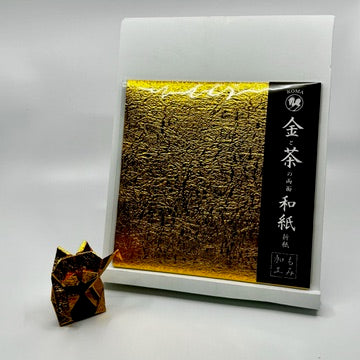 KOMA
金と茶の両面和紙折紙
もみ
和工